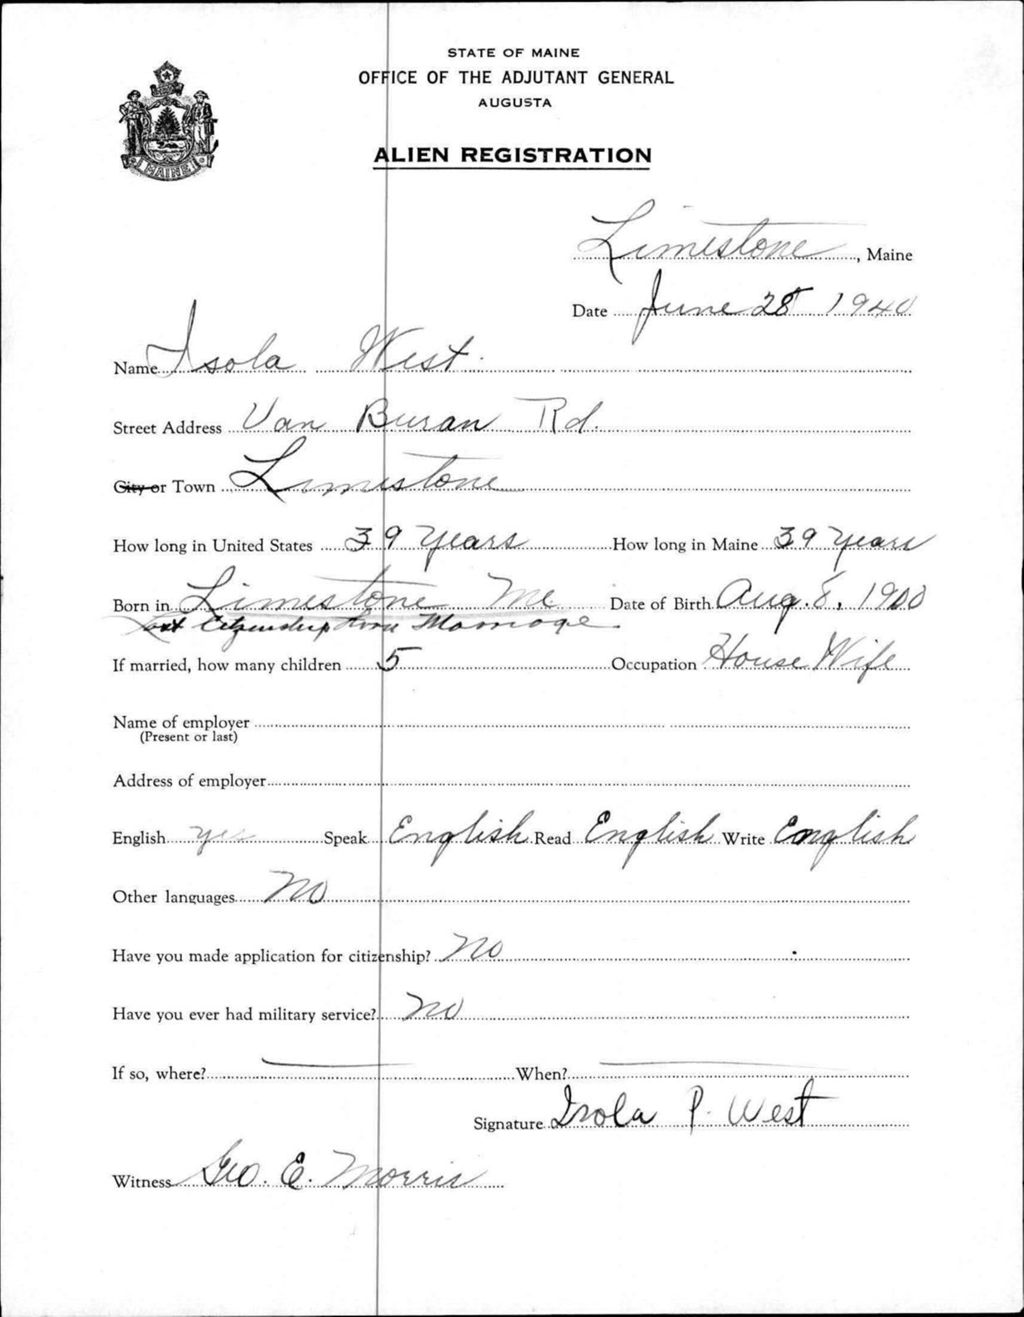 STATE OF MAINE
OFFICE OF THE ADJUTANT GENERAL
AUGUSTA
MAINE
ALIEN REGISTRATION
Limestone, Maine
Date June 28 1940
Name Isola West
Street Address Van Buran Rd.
City or Town Limestone
How long in United States 39 Years How long in Maine 39 Years
Born in Limestone Me Date of Birth Aug. 8, 1900
Lost Citizenship from Marriage
If married, how many children 5 Occupation House Wife
Name of employer
(Present or last)
Address of employer
English yes Speak English Read English Write English
Other languages No
Have you made application for citizenship? No
Have you ever had military service? No
If so, where? When?
Signature Isola P. West
Witness Geo. E. Morris